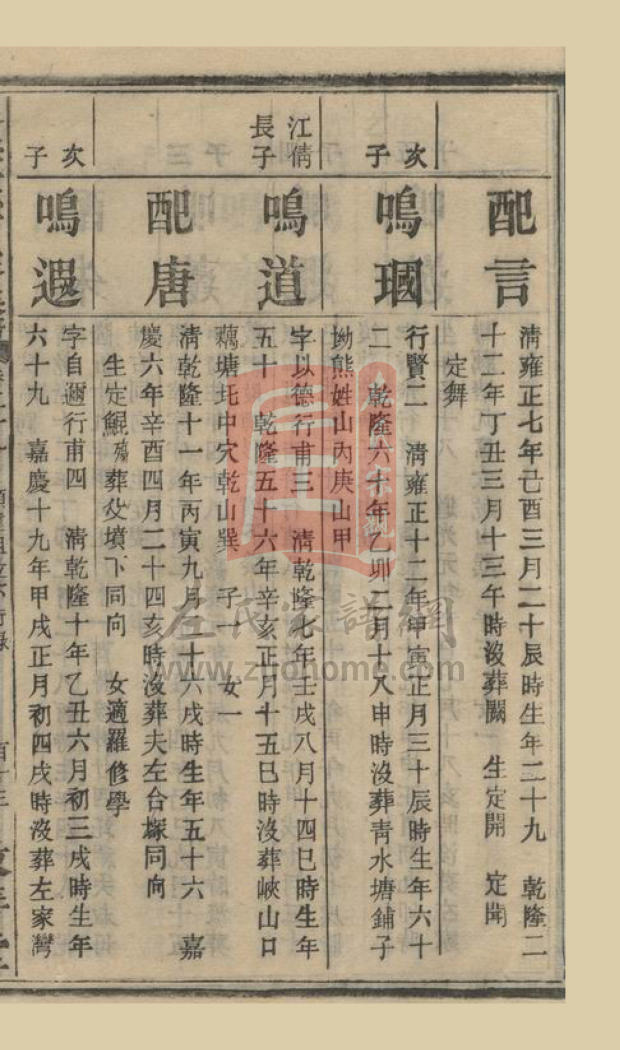 配言
清雍正七年己酉三月二十辰時生年二十九 乾隆二
十二年丁丑三月十三午時沒葬闕 生定開 定聞
定舞
次子
鳴㻏
行賢二 清雍正十二年甲寅正月三十辰時生年六十
二 乾隆六十年乙卯二月十八申時沒葬青水塘鋪子
坳熊姓山內庚山甲
江儔
長子
鳴道
字以德行甫三 清乾隆七年壬戌八月十四巳時生年
五十 乾隆五十六年辛亥正月十五巳時沒葬峽山口
藕塘坵中穴乾山巽 子一 女一
配唐
清乾隆十一年丙寅九月二十六戌時生年五十六 嘉
慶六年辛酉四月二十四亥時沒葬夫左合塚同向
生定鯤殤葬父墳下同向 女適羅修學
次子
鳴遐
字自邇行甫四 清乾隆十年乙丑六月初三戌時生年
六十九 嘉慶十九年甲戌正月初四戌時沒葬左家灣
左氏家譜網
www.zuohome.com